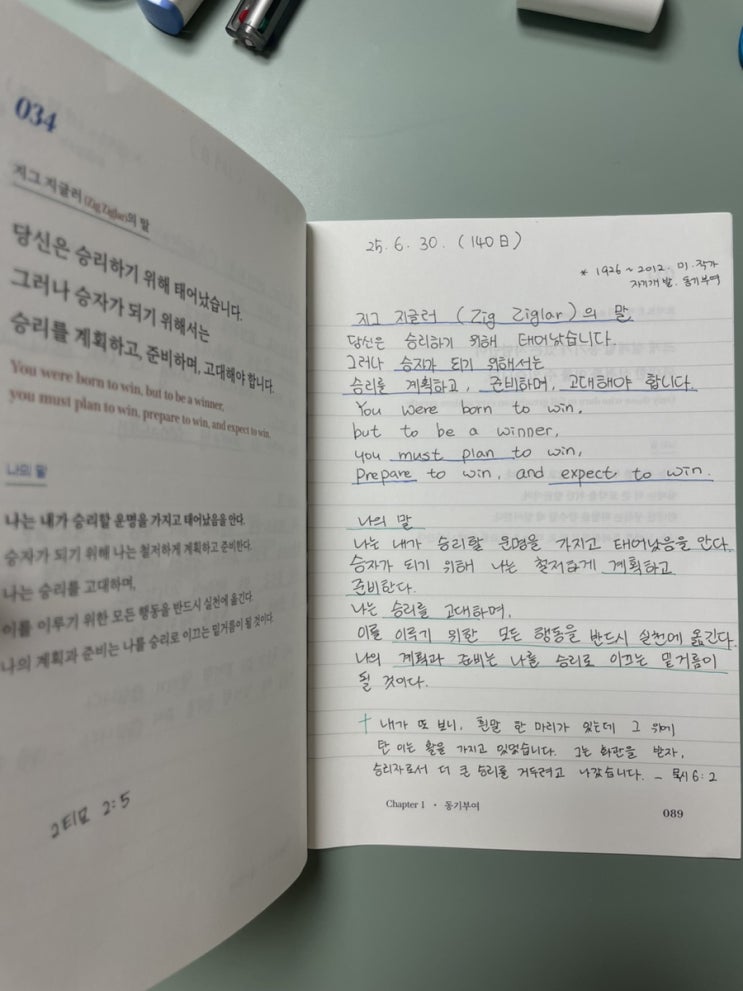 034
지그 지글러(Zig Ziglar)의 말
당신은 승리하기 위해 태어났습니다.
그러나 승자가 되기 위해서는
승리를 계획하고, 준비하며, 고대해야 합니다.
You were born to win, but to be a winner,
you must plan to win, prepare to win, and expect to win.
나의 말
나는 내가 승리할 운명을 가지고 태어났음을 안다.
승자가 되기 위해 나는 철저하게 계획하고 준비한다.
나는 승리를 고대하며,
이를 이루기 위한 모든 행동을 반드시 실천에 옮긴다.
나의 계획과 준비는 나를 승리로 이끄는 밑거름이 될 것이다.
2티모 2:5
25. 6. 30. (140日)
* 1926 ~ 2012. 미. 작가
자기개발. 동기부여
지그 지글러 (Zig Ziglar)의 말
당신은 승리하기 위해 태어났습니다.
그러나 승자가 되기 위해서는
승리를 계획하고, 준비하며, 고대해야 합니다.
You were born to win,
but to be a winner,
you must plan to win,
prepare to win, and expect to win.
나의 말
나는 내가 승리할 운명을 가지고 태어났음을 안다.
승자가 되기 위해 나는 철저하게 계획하고
준비한다.
나는 승리를 고대하며,
이를 이루기 위한 모든 행동을 반드시 실천에 옮긴다.
나의 계획과 준비는 나를 승리로 이끄는 밑거름이
될 것이다.
+ 내가 또 보니, 흰말 한 마리가 있는데 그 위에
탄 이는 활을 가지고 있었습니다. 그는 화관을 받자,
승리자로서 더 큰 승리를 거두려고 나갔습니다. - 묵시 6:2
Chapter 1 · 동기부여
089